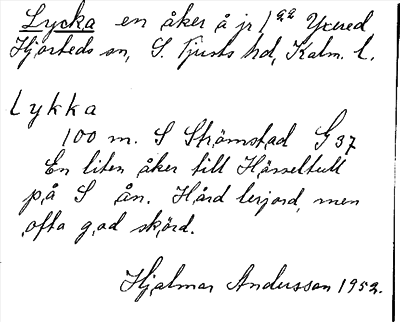 Lycka en åker å jr 1⁠ᵍᵃ Yxered
Hjorteds sn, S. Tjusts hd, Kalm. l.
Lykka
100 m. S Strömstad G 37
En liten åker till Hässeltult
på S ån. Hård lerjord, men
ofta god skörd.
Hjalmar Andersson 1952.